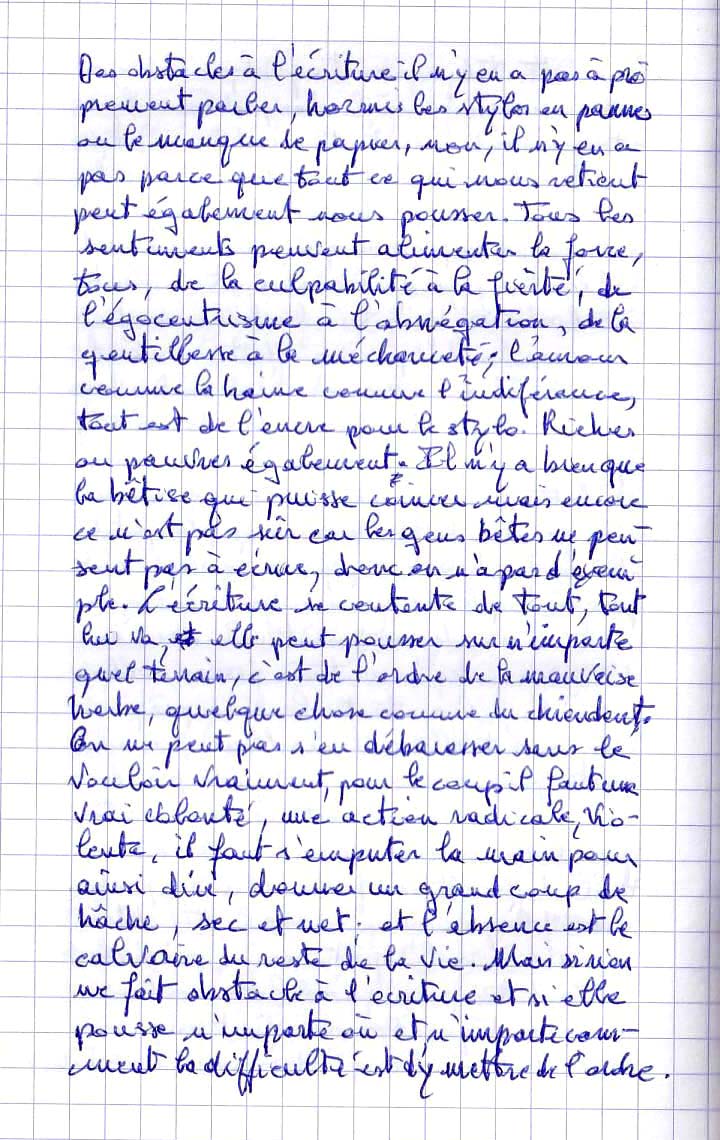 Des obstacles à l'écriture il n'y en a pas à pro
prement parler, hormis les stylos en pannes
ou le manque de papier, non, il n'y en a
pas parce que tout ce qui nous retient
peut également nous pousser. Tous les
sentiments peuvent alimenter la force,
tous, de la culpabilité à la fierté, de
l'égocentrisme à l'abnégation, de la
gentillesse à la méchanceté; l'amour
comme la haine comme l'indiférence,
tout est de l'encre pour le stylo. Riches
ou pauvres également. Il n'y a bien que
la bêtise qui puisse coincer mais encore
ce n'est pas sûr car les gens bêtes ne pen-
sent pas à écrire, donc on n'a pas d'exem
ple. L'écriture se contente de tout, tout
lui va, et elle peut pousser sur n'importe
quel terrain, c'est de l'ordre de la mauvaise
herbe, quelque chose comme du chiendent.
On ne peut pas s'en débarasser sans le
vouloir vraiment, pour le coup il faut une
vrai volonté, une action radicale, vio-
lente, il faut s'emputer la main pour
ainsi dire, donner un grand coup de
hâche, sec et net; et l'absence est le
calvaire du reste de la vie. Mais si rien
ne fait obstacle à l'écriture et si elle
pousse n'importe où et n'importe com-
ment la difficulté est d'y mettre de l'ordre.